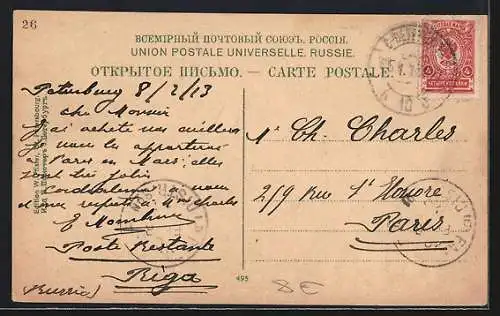 26
ВСЕМІРНЫЙ ПОЧТОВЫЙ СОЮЗЪ. РОССІЯ.
UNION POSTALE UNIVERSELLE. RUSSIE.
ОТКРЫТОЕ ПИСЬМО. — CARTE POSTALE.
Petersburg 8/2/13
cher Monsieur
j'ai acheté vos cuillers
je vous les apporterai
Paris en Mars; elles
sont très jolies
cordialement à vous
Charles
Poste Restante
Riga
(Russie)
Mr Ch. Charles
219 rue St Honoré
Paris
495
8€